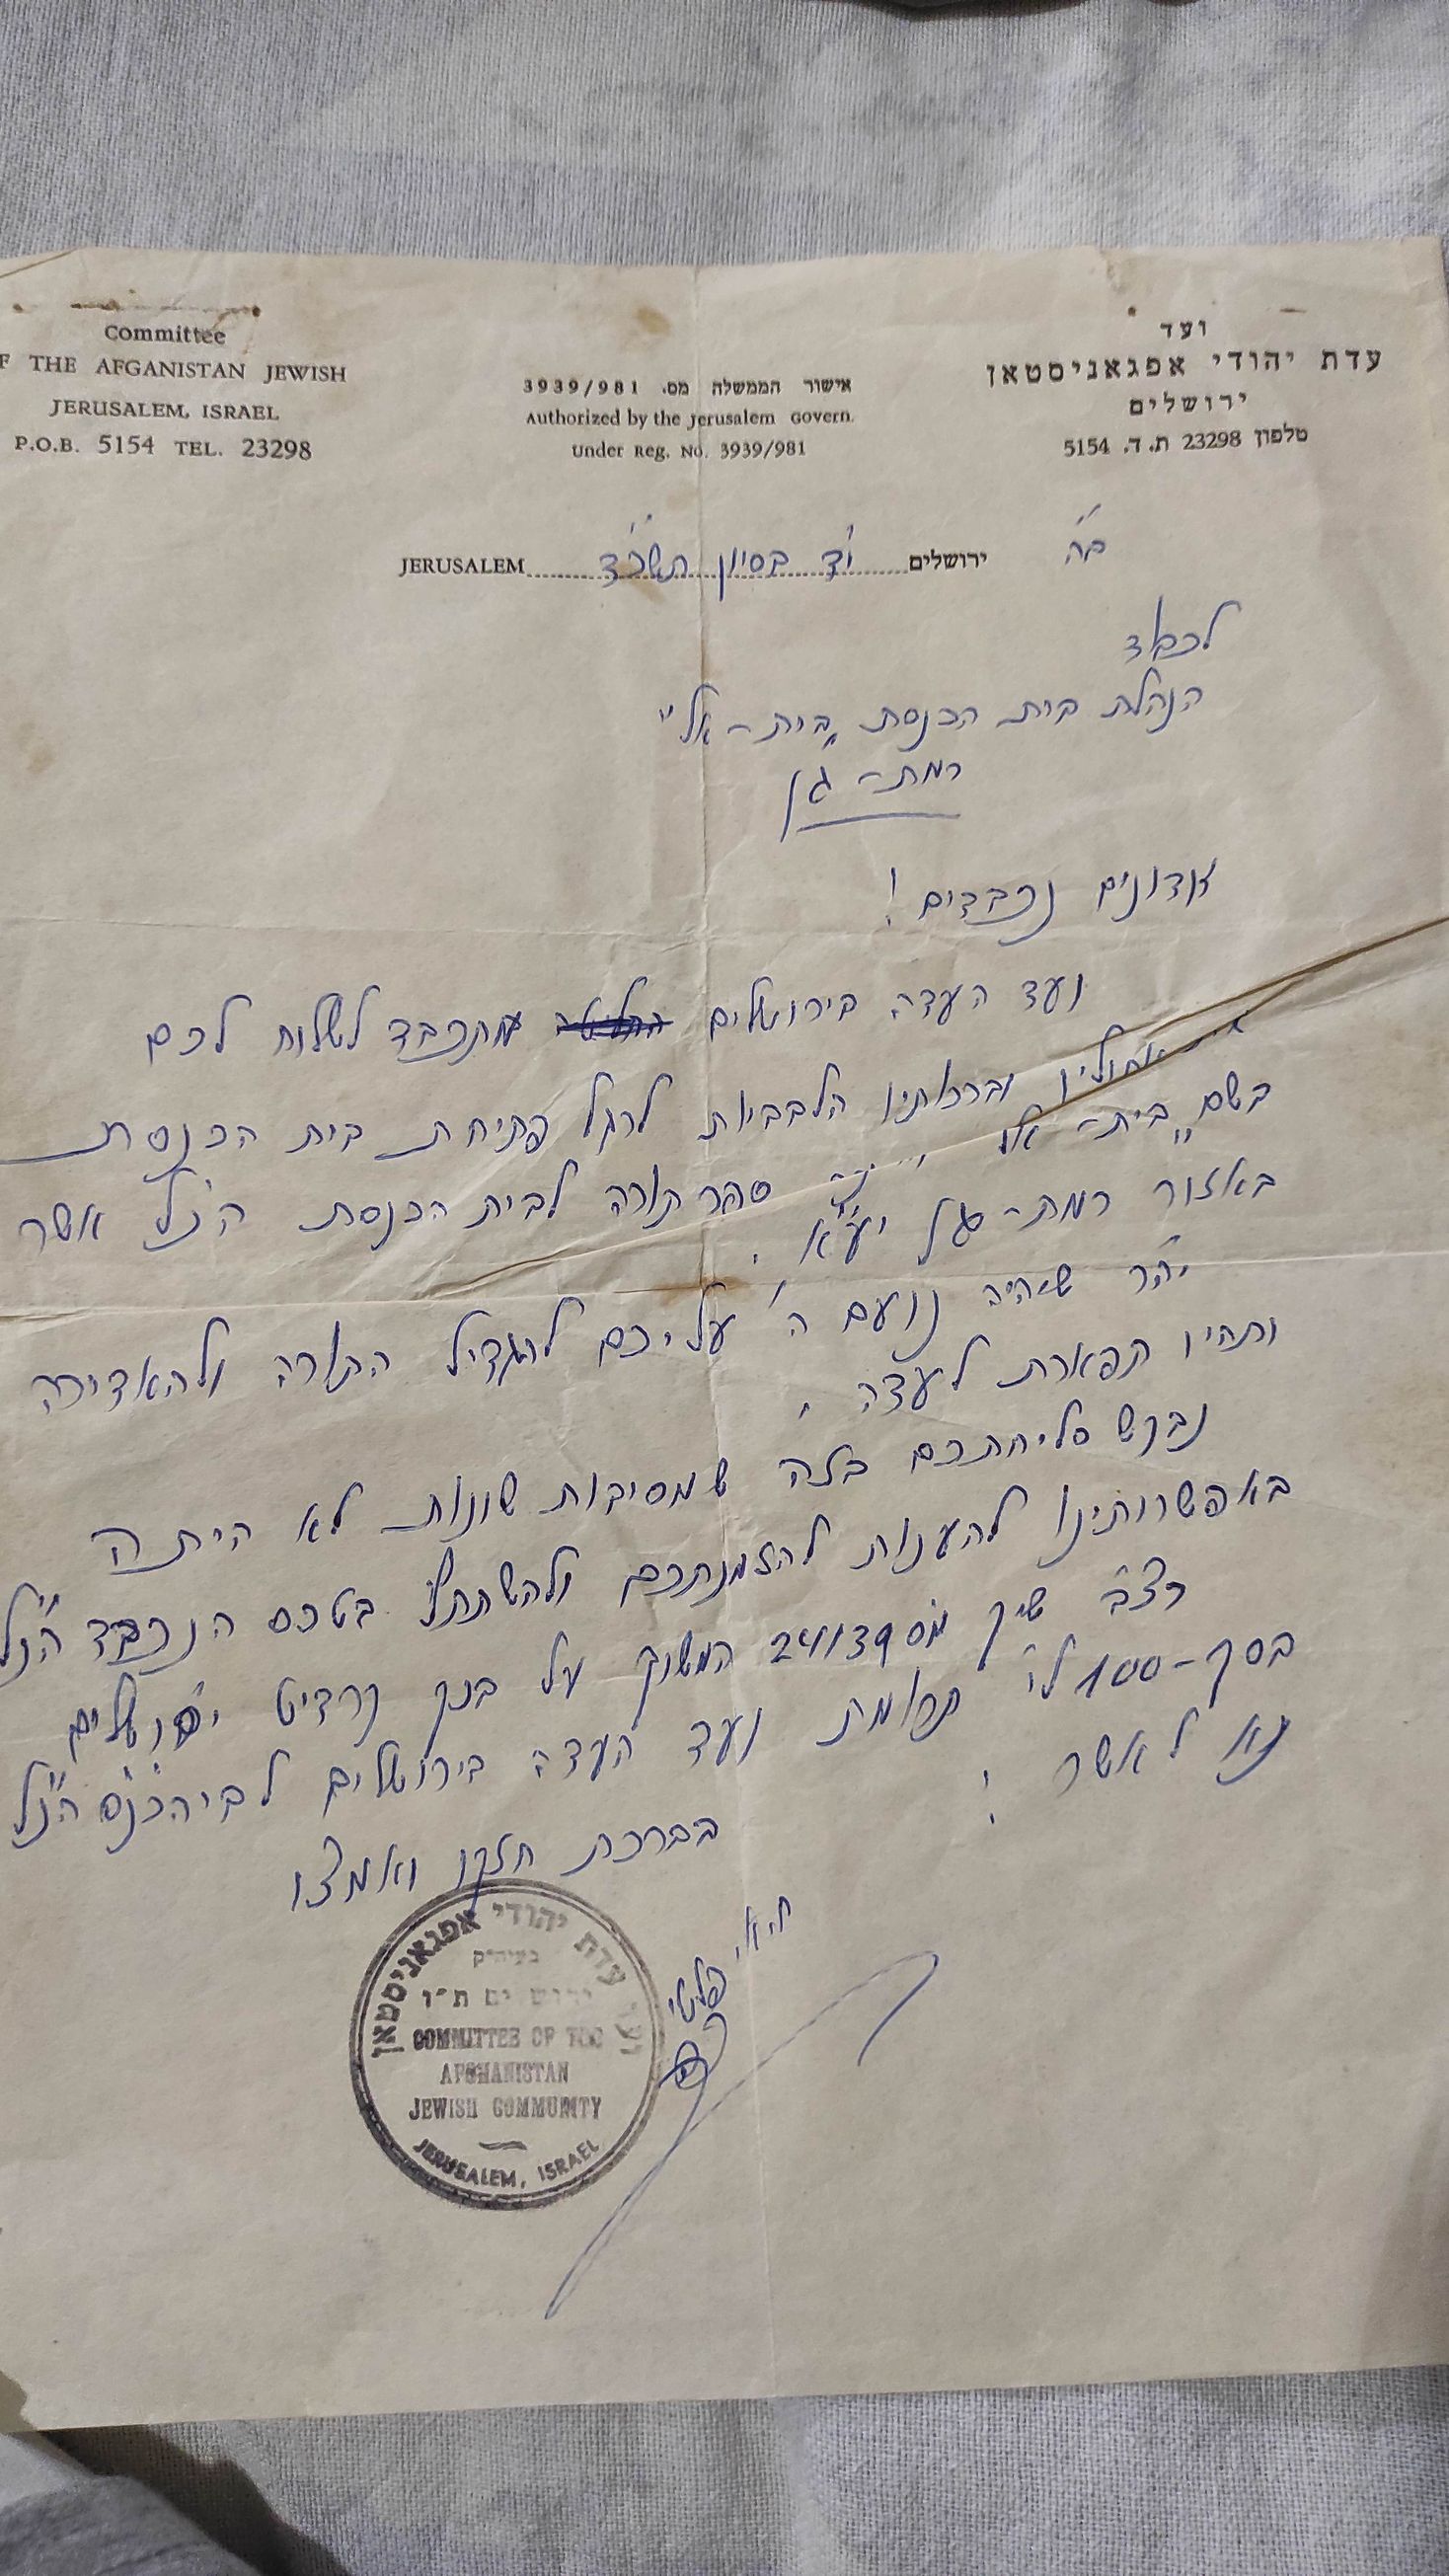 Committee
F THE AFGANISTAN JEWISH
JERUSALEM, ISRAEL
P.O.B. 5154 TEL. 23298
אישור הממשלה מס. 3939/981
Authorized by the Jerusalem Govern.
Under Reg. No. 3939/981
ועד
עדת יהודי אפגאניסטאן
ירושלים
טלפון 23298 ת. ד. 5154
ב"ה
ירושלים י"ד בסיון תשכ"ד JERUSALEM
לכבוד
הנהלת בית הכנסת "בית-אל"
רמת-גן
אדונים נכבדים!
ועד העדה בירושלים מתכבד לשלוח לכם
איחולינו וברכותינו הלבביות לרגל פתיחת בית הכנסת
בשם "בית-אל" ספר תורה לבית הכנסת הנ"ל אשר
באזור רמת-גן יע"א.
יה"ר שיהיה נועם ה' עליכם להגדיל התורה ולהאדירה
ותהיו תפארת לעדה.
נבקש סליחתכם בזה שמסיבות שונות לא היתה
באפשרותינו להענות להזמנתכם ולהשתתף בטכס הנכבד הנ"ל
רצ"ב שיק מס 2411394 המשוך על בנק קרדיט ירושלים
בסך -100 ל"י תרומת ועד העדה בירושלים לביהכנ"ס הנ"ל
נא לאשר!
בברכת חזקו ואמצו
ועד עדת יהודי אפגאניסטאן
בעיה"ק
ירושלים ת"ו
COMMITTEE OF THE
AFGHANISTAN
JEWISH COMMUNITY
JERUSALEM, ISRAEL